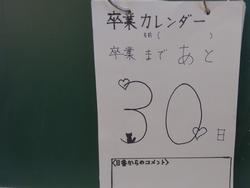 卒業カレンダー
名前(　　　)
卒業まであと
30日
<日番からのコメント>